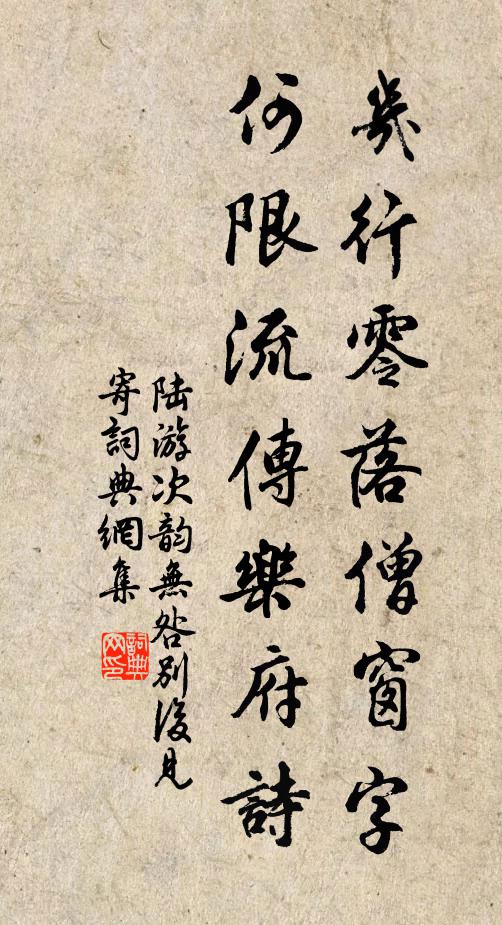 幾行零落僧窗字
何限流傳樂府詩
陸游次韵無咎別後見
寄詞典網集
詞典网印